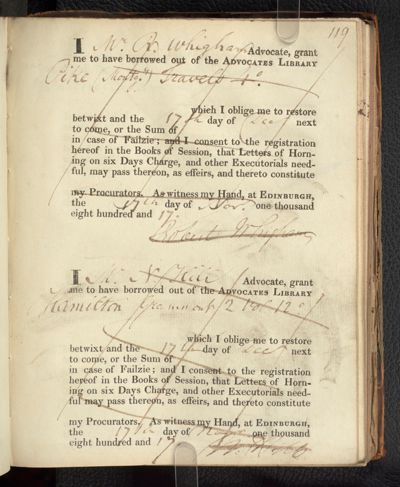 119
I Mr. R. Whigham Advocate, grant
me to have borrowed out of the ADVOCATES LIBRARY
Pike (Montgy.) Travels 4o.
which I oblige me to restore
betwixt and the 17th day of Decr next
to come, or the Sum of
in case of Failzie; and I consent to the registration
hereof in the Books of Session, that Letters of Horn-
ing on six Days Charge, and other Executorials need-
ful, may pass thereon, as effeirs, and thereto constitute
my Procurators. As witness my Hand, at EDINBURGH,
the 17th day of Novr. one thousand
eight hundred and 17
Robert Whigham
I Mr. Advocate, grant
me to have borrowed out of the ADVOCATES LIBRARY
Hamilton Grammont 2 vol 12o
which I oblige me to restore
betwixt and the 17th day of Decr next
to come, or the Sum of
in case of Failzie; and I consent to the registration
hereof in the Books of Session, that Letters of Horn-
ing on six Days Charge, and other Executorials need-
ful may pass thereon, as effeirs, and thereto constitute
my Procurators. As witness my Hand, at EDINBURGH,
the 17th day of Novr one thousand
eight hundred and 17